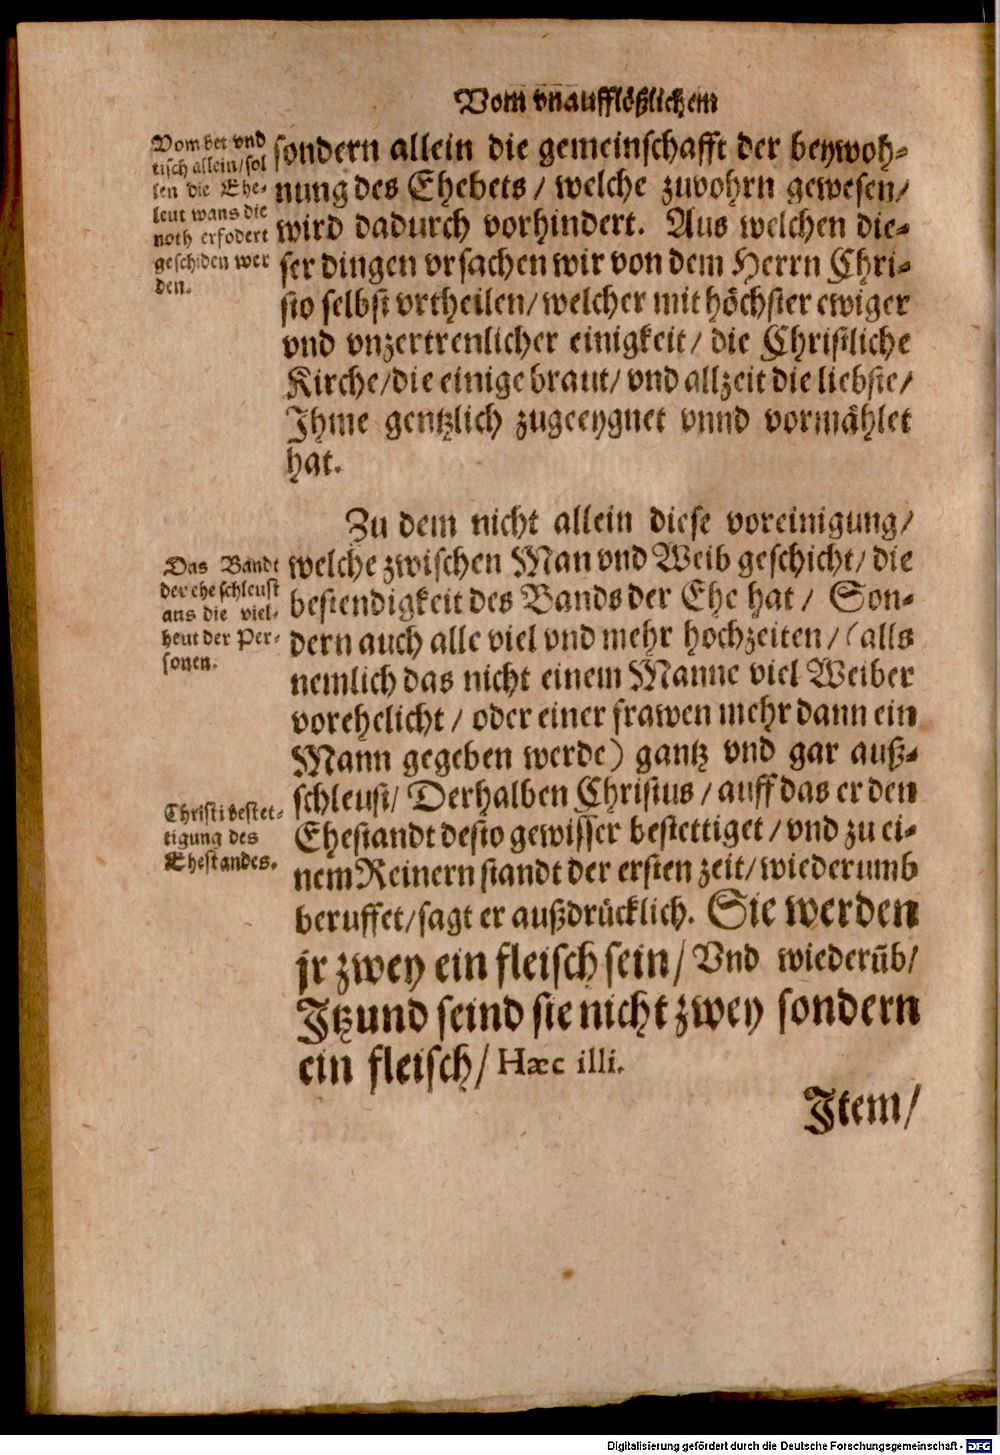 Vom vnaufflößlichem
Vom bet vnd
tisch allein/sol
len die Ehe-
leut wans die
noth erfodert
geschiden wer
den.
sondern allein die gemeinschafft der beywoh-
nung des Ehebets / welche zuvohrn gewesen/
wird dadurch vorhindert. Aus welchen die-
ser dingen vrsachen wir von dem Herrn Chri-
sto selbst vrtheilen/welcher mit höchster ewiger
vnd vnzertrenlicher einigkeit/ die Christliche
Kirche/die einige braut/ vnd allzeit die liebste/
Ihme gentzlich zugeeygnet vnnd vormählet
hat.
Zu dem nicht allein diese voreinigung/
Das Bandt
der ehe schleust
aus die viel-
heut der Per-
sonen.
welche zwischen Man vnd Weib geschicht/ die
bestendigkeit des Bands der Ehe hat / Son-
dern auch alle viel vnd mehr hochzeiten/ (alls
nemlich das nicht einem Manne viel Weiber
vorehelicht / oder einer frawen mehr dann ein
Mann gegeben werde) gantz vnd gar auß-
schleust/ Derhalben Christus / auff das er den
Christi bestet-
tigung des
Ehestandes.
Ehestandt desto gewisser bestettiget / vnd zu ei-
nem Reinern standt der ersten zeit/ wiederumb
beruffet/sagt er außdrücklich. Sie werden
jr zwey ein fleisch sein/ Vnd wiederūb/
Itzund seind sie nicht zwey sondern
ein fleisch/ Hæc illi.
Item/
Digitalisierung gefördert durch die Deutsche Forschungsgemeinschaft - DFG